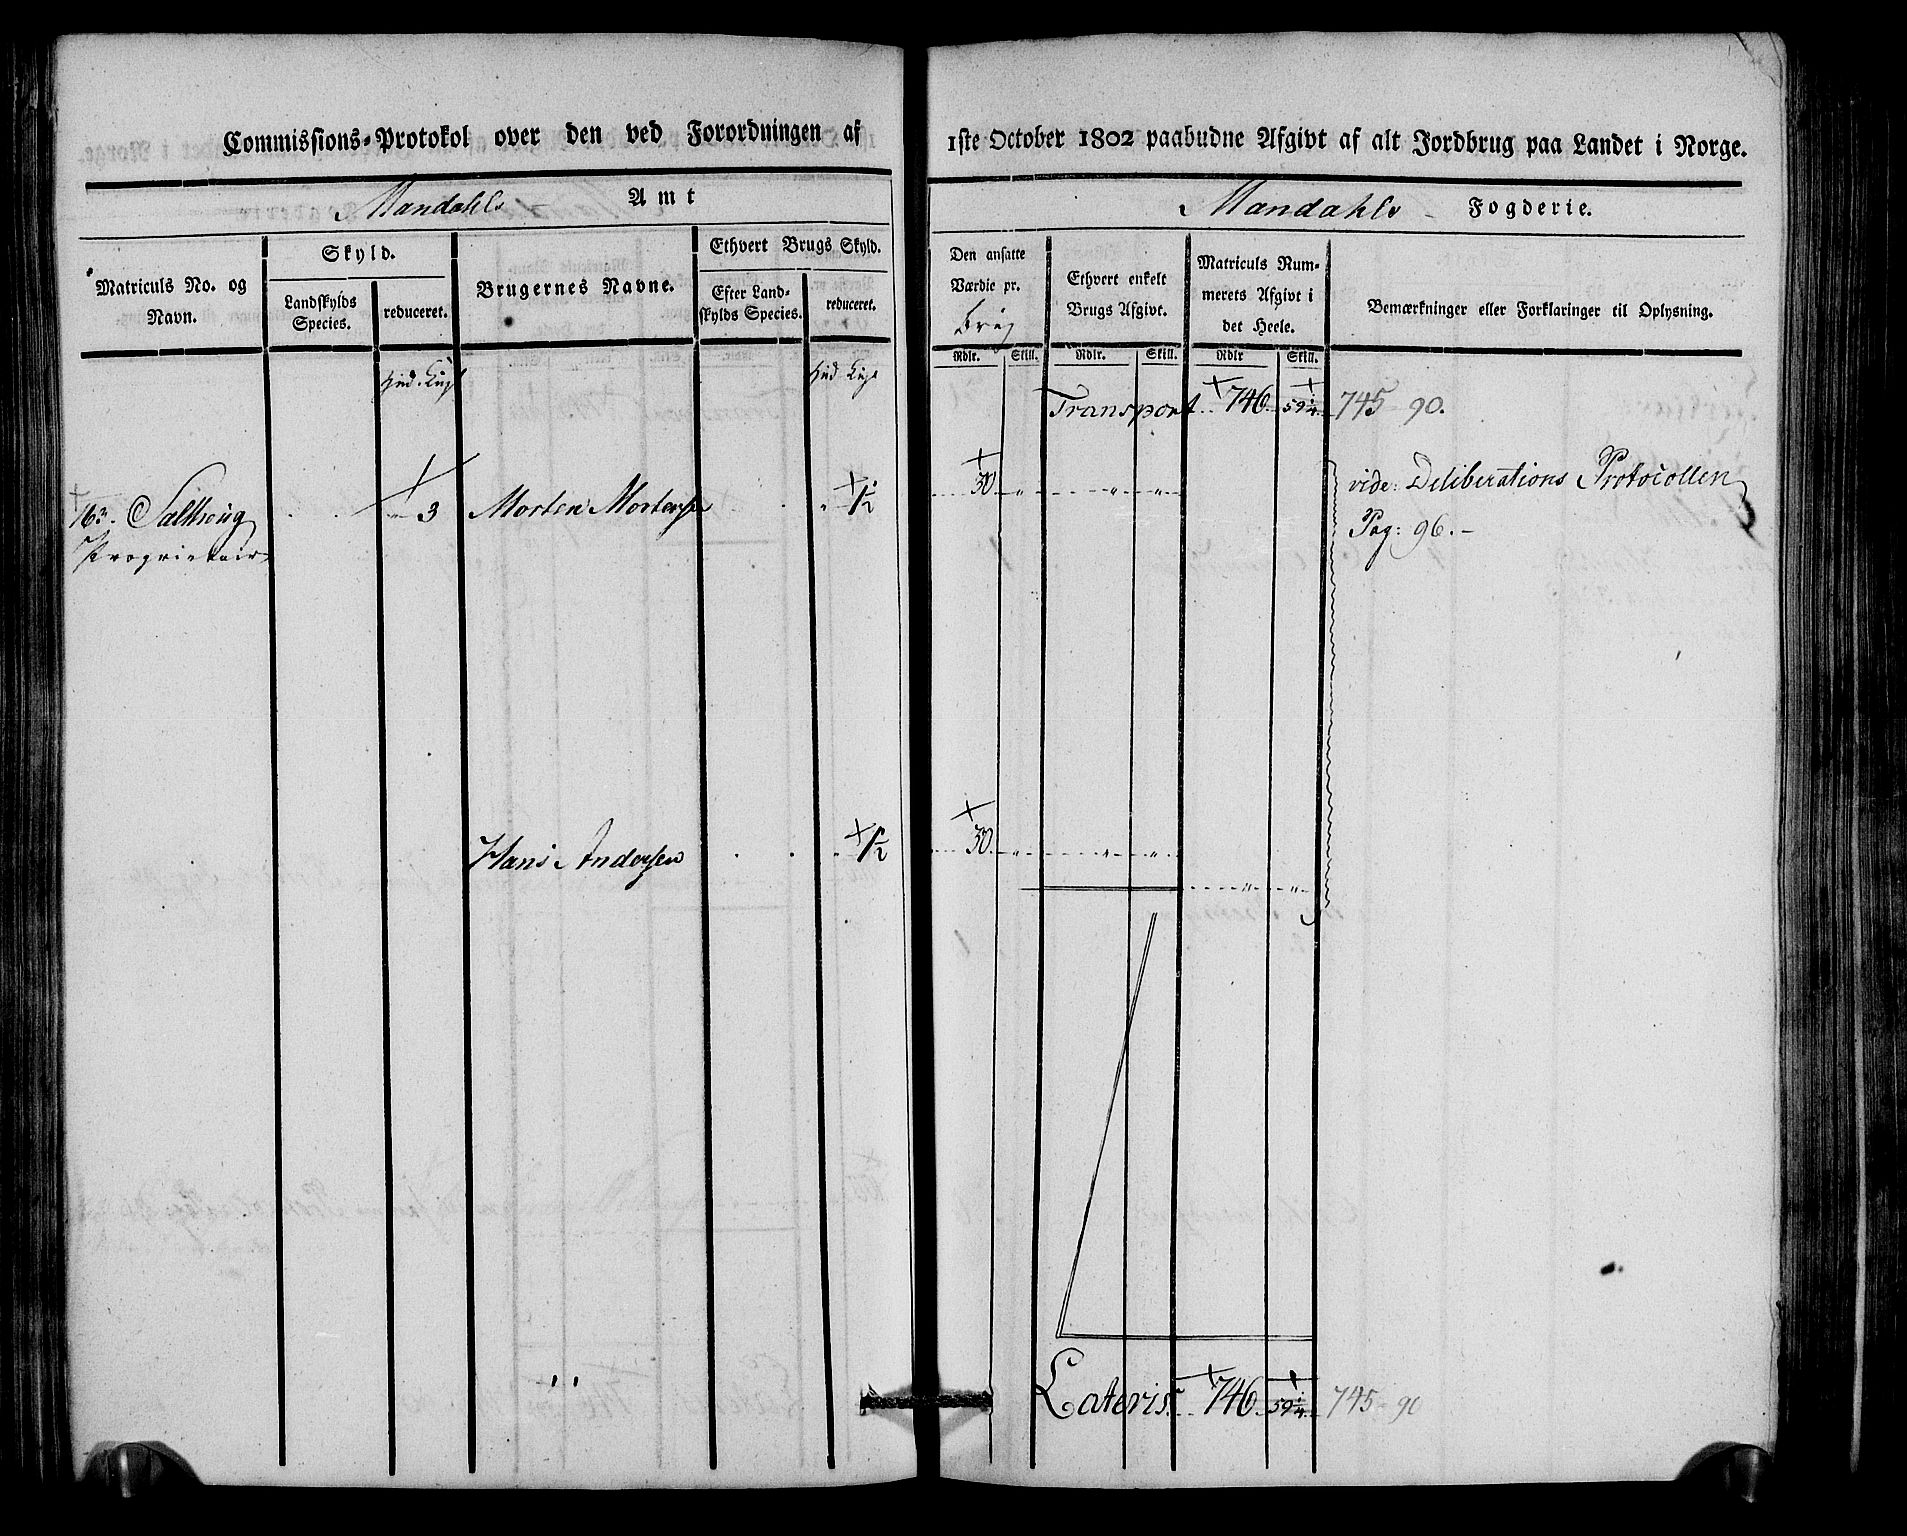 Commissions-Protokol over den ved Forordningen af
Mandahls Amt
Matriculs No. og Navn.
Skyld.
Landskylds Species.
reduceret.
Brugernes Navne.
Ethvert Brugs Skyld.
Efter Landskylds Species.
reduceret.
163. Salthoug
Proprietair
3
Morten Mortensen
1/2
Hans Andersen
1/2
1ste October 1802 paabudne Afgivt af alt Jordbrug paa Landet i Norge.
Mandahls Fogderie.
Den ansatte Værdie pr. Brug
Ethvert enkelt Brugs Afgivt.
Matriculs Nummerets Afgivt i det Heele.
Bemærkninger eller Forklaringer til Oplysning.
Rdlr. Skill. Rdlr. Skill. Rdlr Skill.
Transport 746 59 1/4 745 90.
30 " " "
vide: Deliberations Protocollen
Pag: 96.-
30 " " "
" "
Lateris 746 59 1/4 745-90